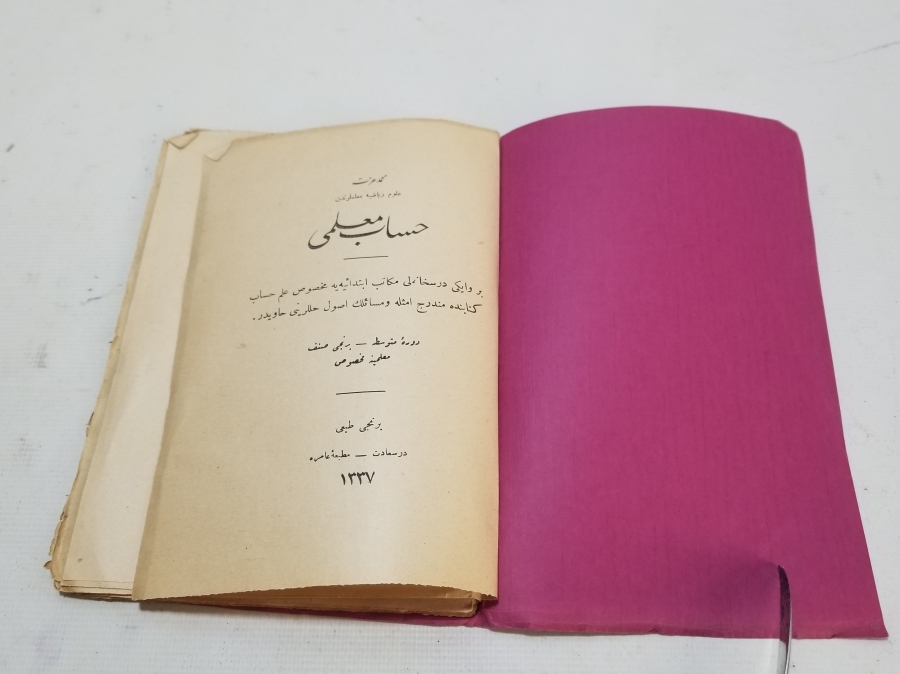 محمد عزت
علوم ریاضیه معلملرندن
حساب معلمی
بر وایکی درسخانه‌لی مکاتب ابتدائیه‌یه مخصوص علم حساب
کتابنده مندرج امثله ومسائلك اصول حللرینی حاویدر .
دورهٔ متوسطه — برنجی صنف
معلمینه مخصوص
برنجی طبعی
درسعادت — مطبعهٔ عامره
١٣٣٧